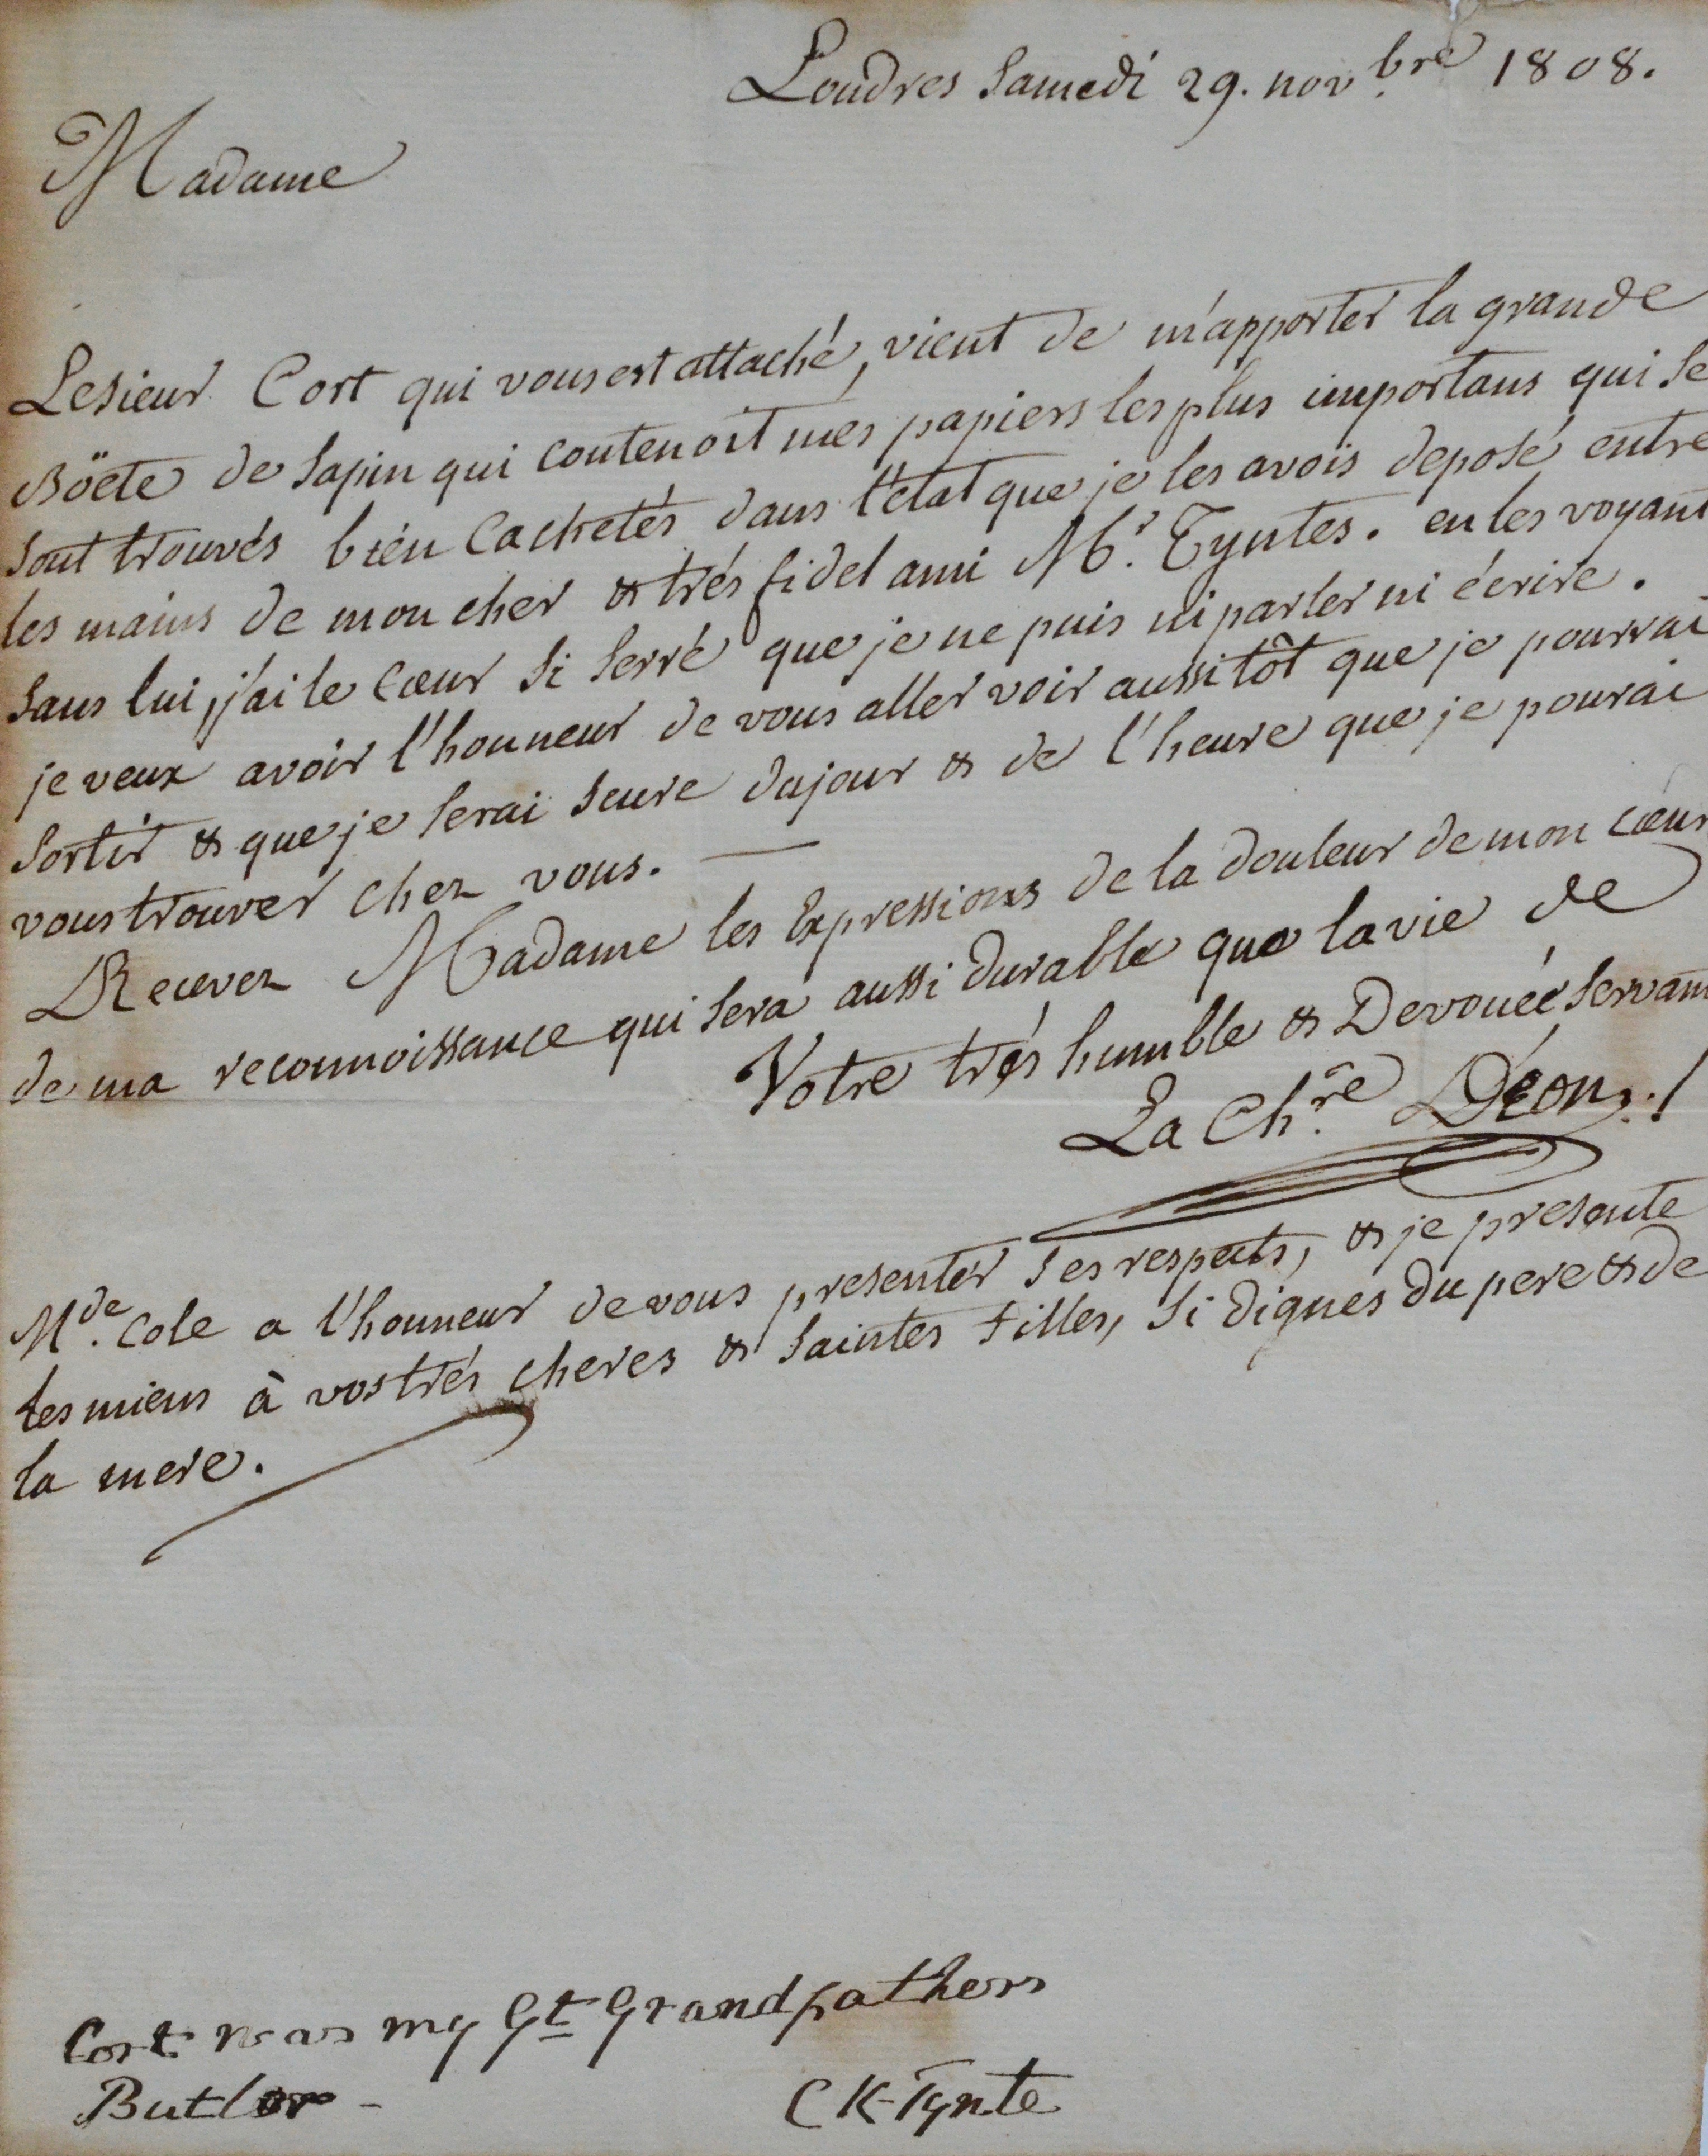 Londres Samedi 29. nov.bre 1808.
Madame
Le sieur Cort qui vous est attaché, vient de m'apporter la grande
Böete de Sapin qui contenoit mes papiers les plus importans qui se
sont trouvés bien Cachetés dans l'état que je les avois deposé entre
les mains de mon cher & trés fidel ami Mr. Tyntes. en les voyant
sans lui, j'ai le cœur si serré que je ne puis ni parler ni écrire.
je veux avoir l'honneur de vous aller voir aussitôt que je pourrai
sortir & que je serai seure du jour & de l'heure que je pourai
vous trouver chez vous. —
Recevez Madame les Expressions de la douleur de mon cœur
de ma reconnoissance qui sera aussi durable que la vie de
Votre trés humble & Devouée servante
La Ch.re Déon.
Mde. Cole a l'honneur de vous presenter ses respects, & je presente
les miens à vos trés cheres & saintes filles, si dignes du pere & de
la mere.
Cort was my Gt Grandfathers
Butler -
C K-Tynte